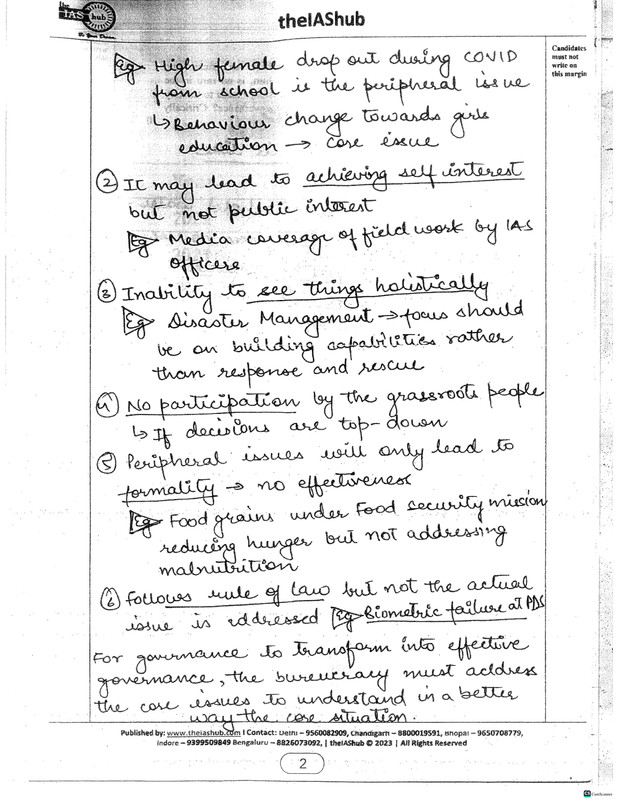 the
IAS hub
theIAShub
Candidates
must not
write on
this margin
Eg High female drop out during COVID
from school is the peripheral issue
↳ Behaviour change towards girls
education → core issue
② It may lead to achieving self interest
but not public interest
Eg Media coverage of field work by IAS
officers
③ Inability to see things holistically
Eg Disaster Management → focus should
be on building capabilities rather
than response and rescue
④ No participation by the grassroots people
↳ If decisions are top-down
⑤ Peripheral issues will only lead to
formality → no effectiveness
Eg Food grains under Food security mission
reducing hunger but not addressing
malnutrition
⑥ Follows rule of law but not the actual
issue is addressed Eg Biometric failure at PDS
For governance to transform into effective
governance, the bureucracy must address
the core issues to understand in a better
way the core situation.
Published by: www.theiashub.com I Contact: Delhi – 9560082909, Chandigarh – 8800019591, Bhopal – 9650708779,
Indore – 9399509849 Bengaluru – 8826073092, | theIAShub © 2023 | All Rights Reserved
2
CamScanner